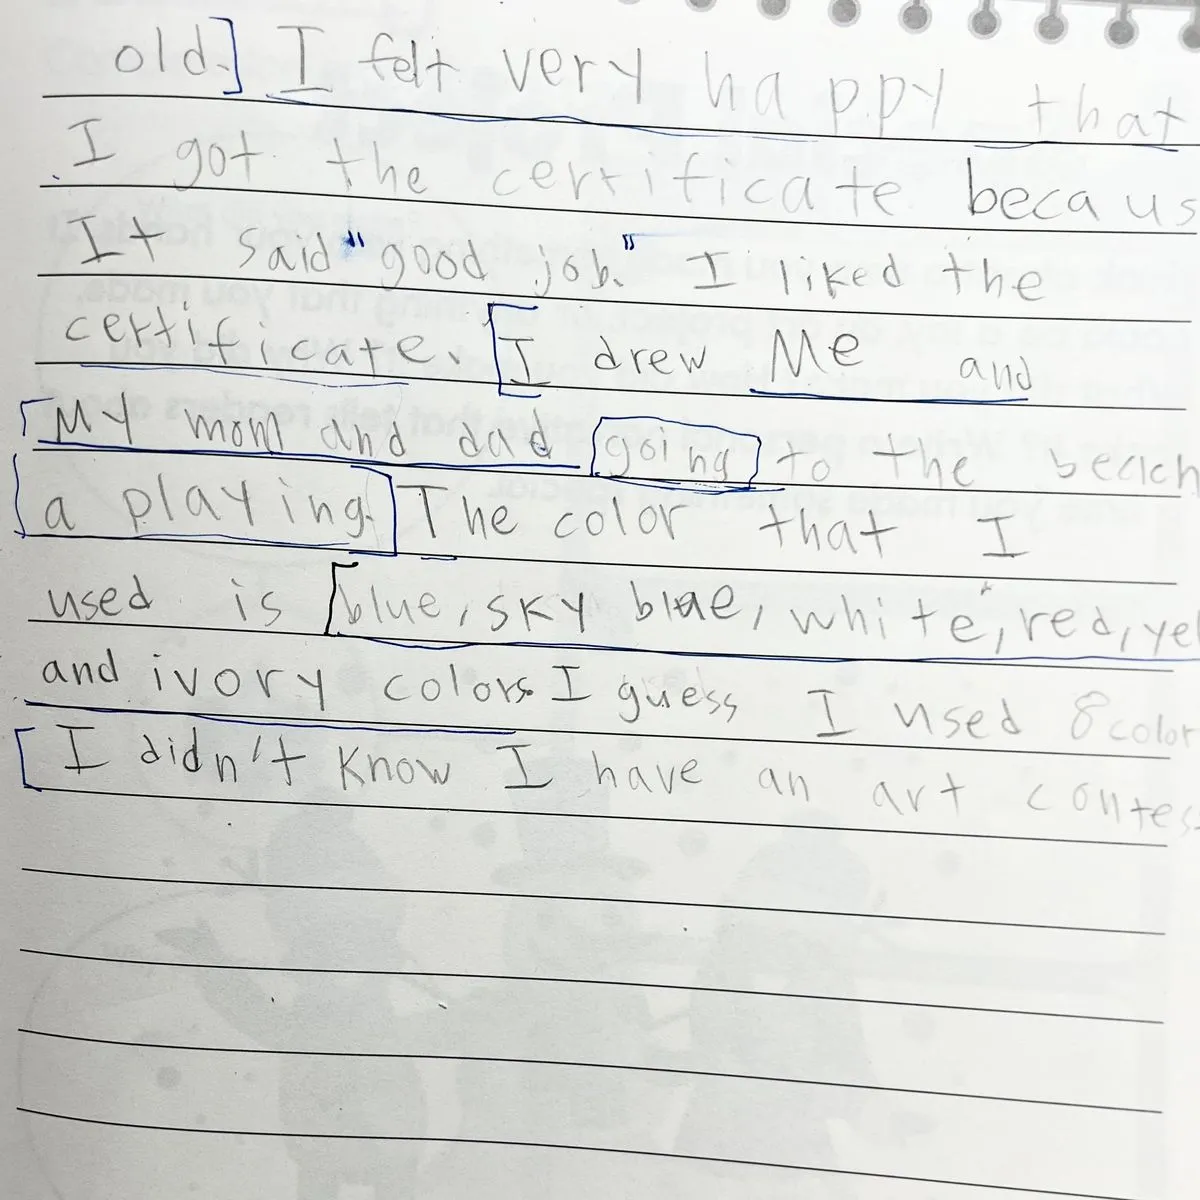 old. I felt very happy that
I got the certificate becaus
It said "good job." I liked the
certificate. I drew Me and
My mom and dad going to the beach
a playing. The color that I
used is blue, sky blue, white, red, yel
and ivory colors. I guess I used 8 color
I didn't know I have an art contes